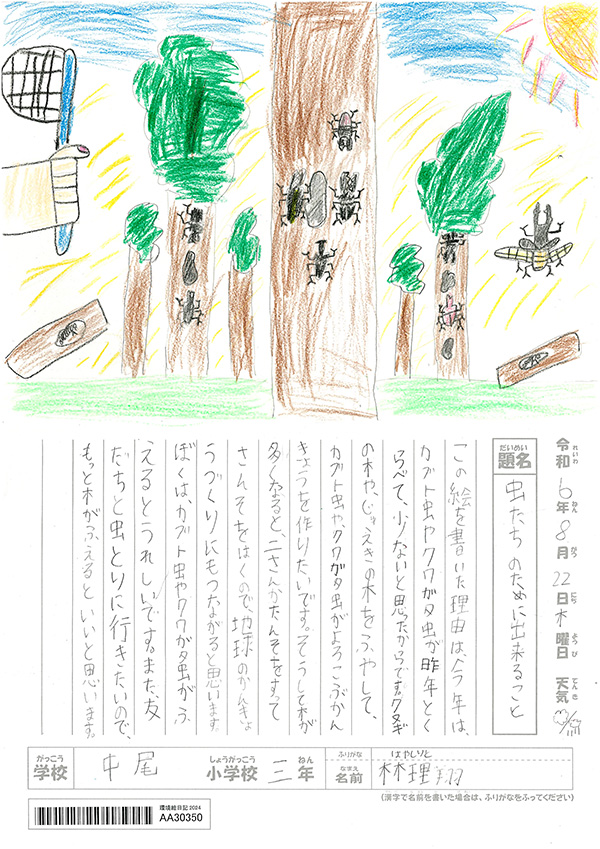 令和6年8月22日木曜日 天気
れいわ ねん がつ にち ようび てんき
だいめい
題名 虫たちのために出来ること
この絵を書いた理由は、今年は、
カブト虫やクワガタ虫が昨年とく
らべて、少ないと思ったからです。クヌギ
の木や、じゅえきの木をふやして、
カブト虫や、クワガタ虫がよろこぶかん
きょうを作りたいです。そうして木が
多くなると、二さんかたんそをすって
さんそをはくので、地球のかんきょ
うづくりにもつながると思います。
ぼくは、カブト虫やクワガタ虫がふ
えるとうれしいです。また、友
だちと虫とりに行きたいので、
もっと木がふえるといいと思います。
がっこう
学校 中尾
しょうがっこう ねん
小学校 三年
ふりがな はやしりと
なまえ
名前 林理翔
(漢字で名前を書いた場合は、ふりがなをふってください)
環境絵日記2024
AA30350